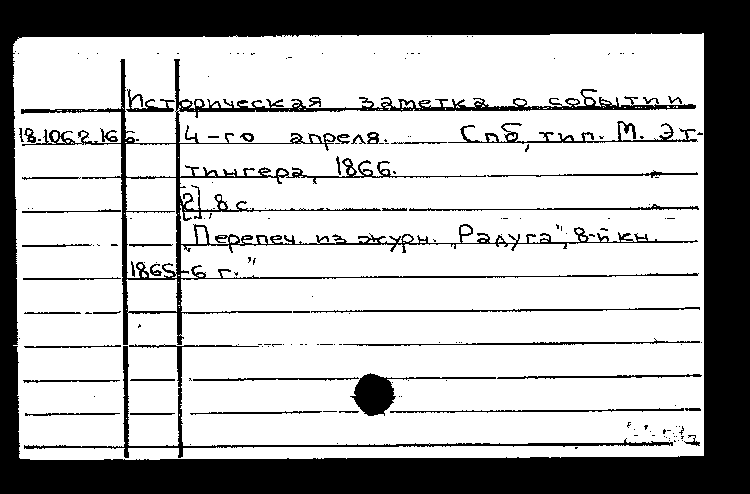 Историческая заметка о событии
18.106.2.166. 4-го апреля. Спб, тип. М. Эт-
тингера, 1866.
[2], 8 с.
„Перепеч. из журн. „Радуга", 8-й кн.
1865-6 г."